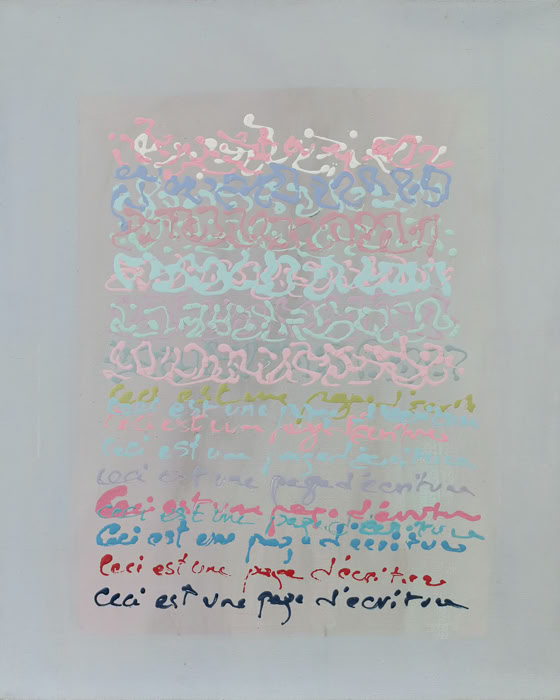 Ceci est une page d'écriture
Ceci est une page d'écriture
Ceci est une page d'écriture
Ceci est une page d'écriture
Ceci est une page d'écriture
Ceci est une page d'écriture
Ceci est une page d'écriture
Ceci est une page d'écriture
Ceci est une page d'écriture
Ceci est une page d'ecriture